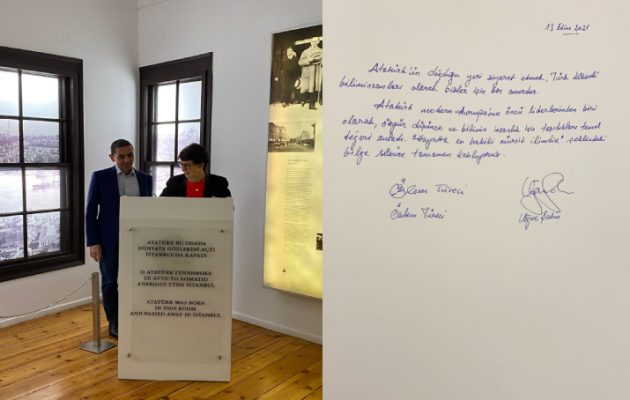 ATATÜRK BU ODADA
DÜNYAYA GÖZLERİNİ AÇTI
İSTANBUL'DA KAPADI
Ο ΑΤΑΤΟΥΡΚ ΓΕΝΝΗΘΗΚΕ
ΣΕ ΑΥΤΟ ΤΟ ΔΩΜΑΤΙΟ
ΣΤΗΝ ISTANBUL
ATATÜRK WAS BORN
IN THIS ROOM
AND PASSED AWAY IN İSTANBUL
13 Ekim 2021
Atatürk'ün doğduğu yeri ziyaret etmek, Türk kökenli
biliminsanları olarak bizler için bir onurdur.
Atatürk modern Avrupa'nın öncü liderlerinden biri
olarak, özgür düşünce ve bilimin insanlık için taşıdıkları temel
değeri anladı. "Hayatta en hakiki mürşit ilimdir" şeklindeki
bilge sözüne tamamen katılıyoruz.
Özlem Türeci
Özlem Türeci
Uğur Şahin